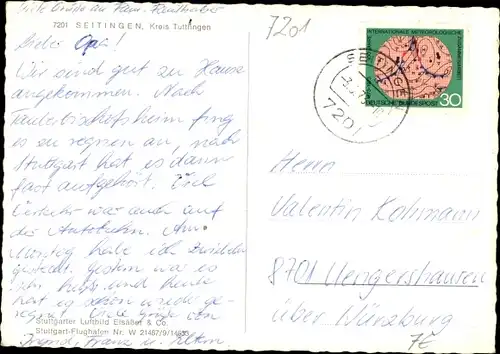 Viele Grüße an Fam.
7201 SEITINGEN, Kreis Tuttlingen
Lieber Opa!
Wir sind gut zu Hause
angekommen. Nach
Tauberbischofsheim fing
es zu regnen an, nach
Stuttgart hat es dann
fast aufgehört. Viel
Verkehr war auch auf
der Autobahn. Am
Montag habe ich Zwiebeln
gesteckt. Gestern war es
sehr heiß und heute
hat es schon wieder ge-
regnet. Viele Grüße von
Stuttgarter Luftbild Elsäßer & Co.
Stuttgart-Flughafen Nr. W 21487/9/14633
Franz u. Eltern
7201
INTERNATIONALE METEOROLOGISCHE ZUSAMMENARBEIT
DEUTSCHE BUNDESPOST 30
SEITINGEN
7201
Herrn
Valentin Kohmann
8701 Uengershausen
über Würzburg